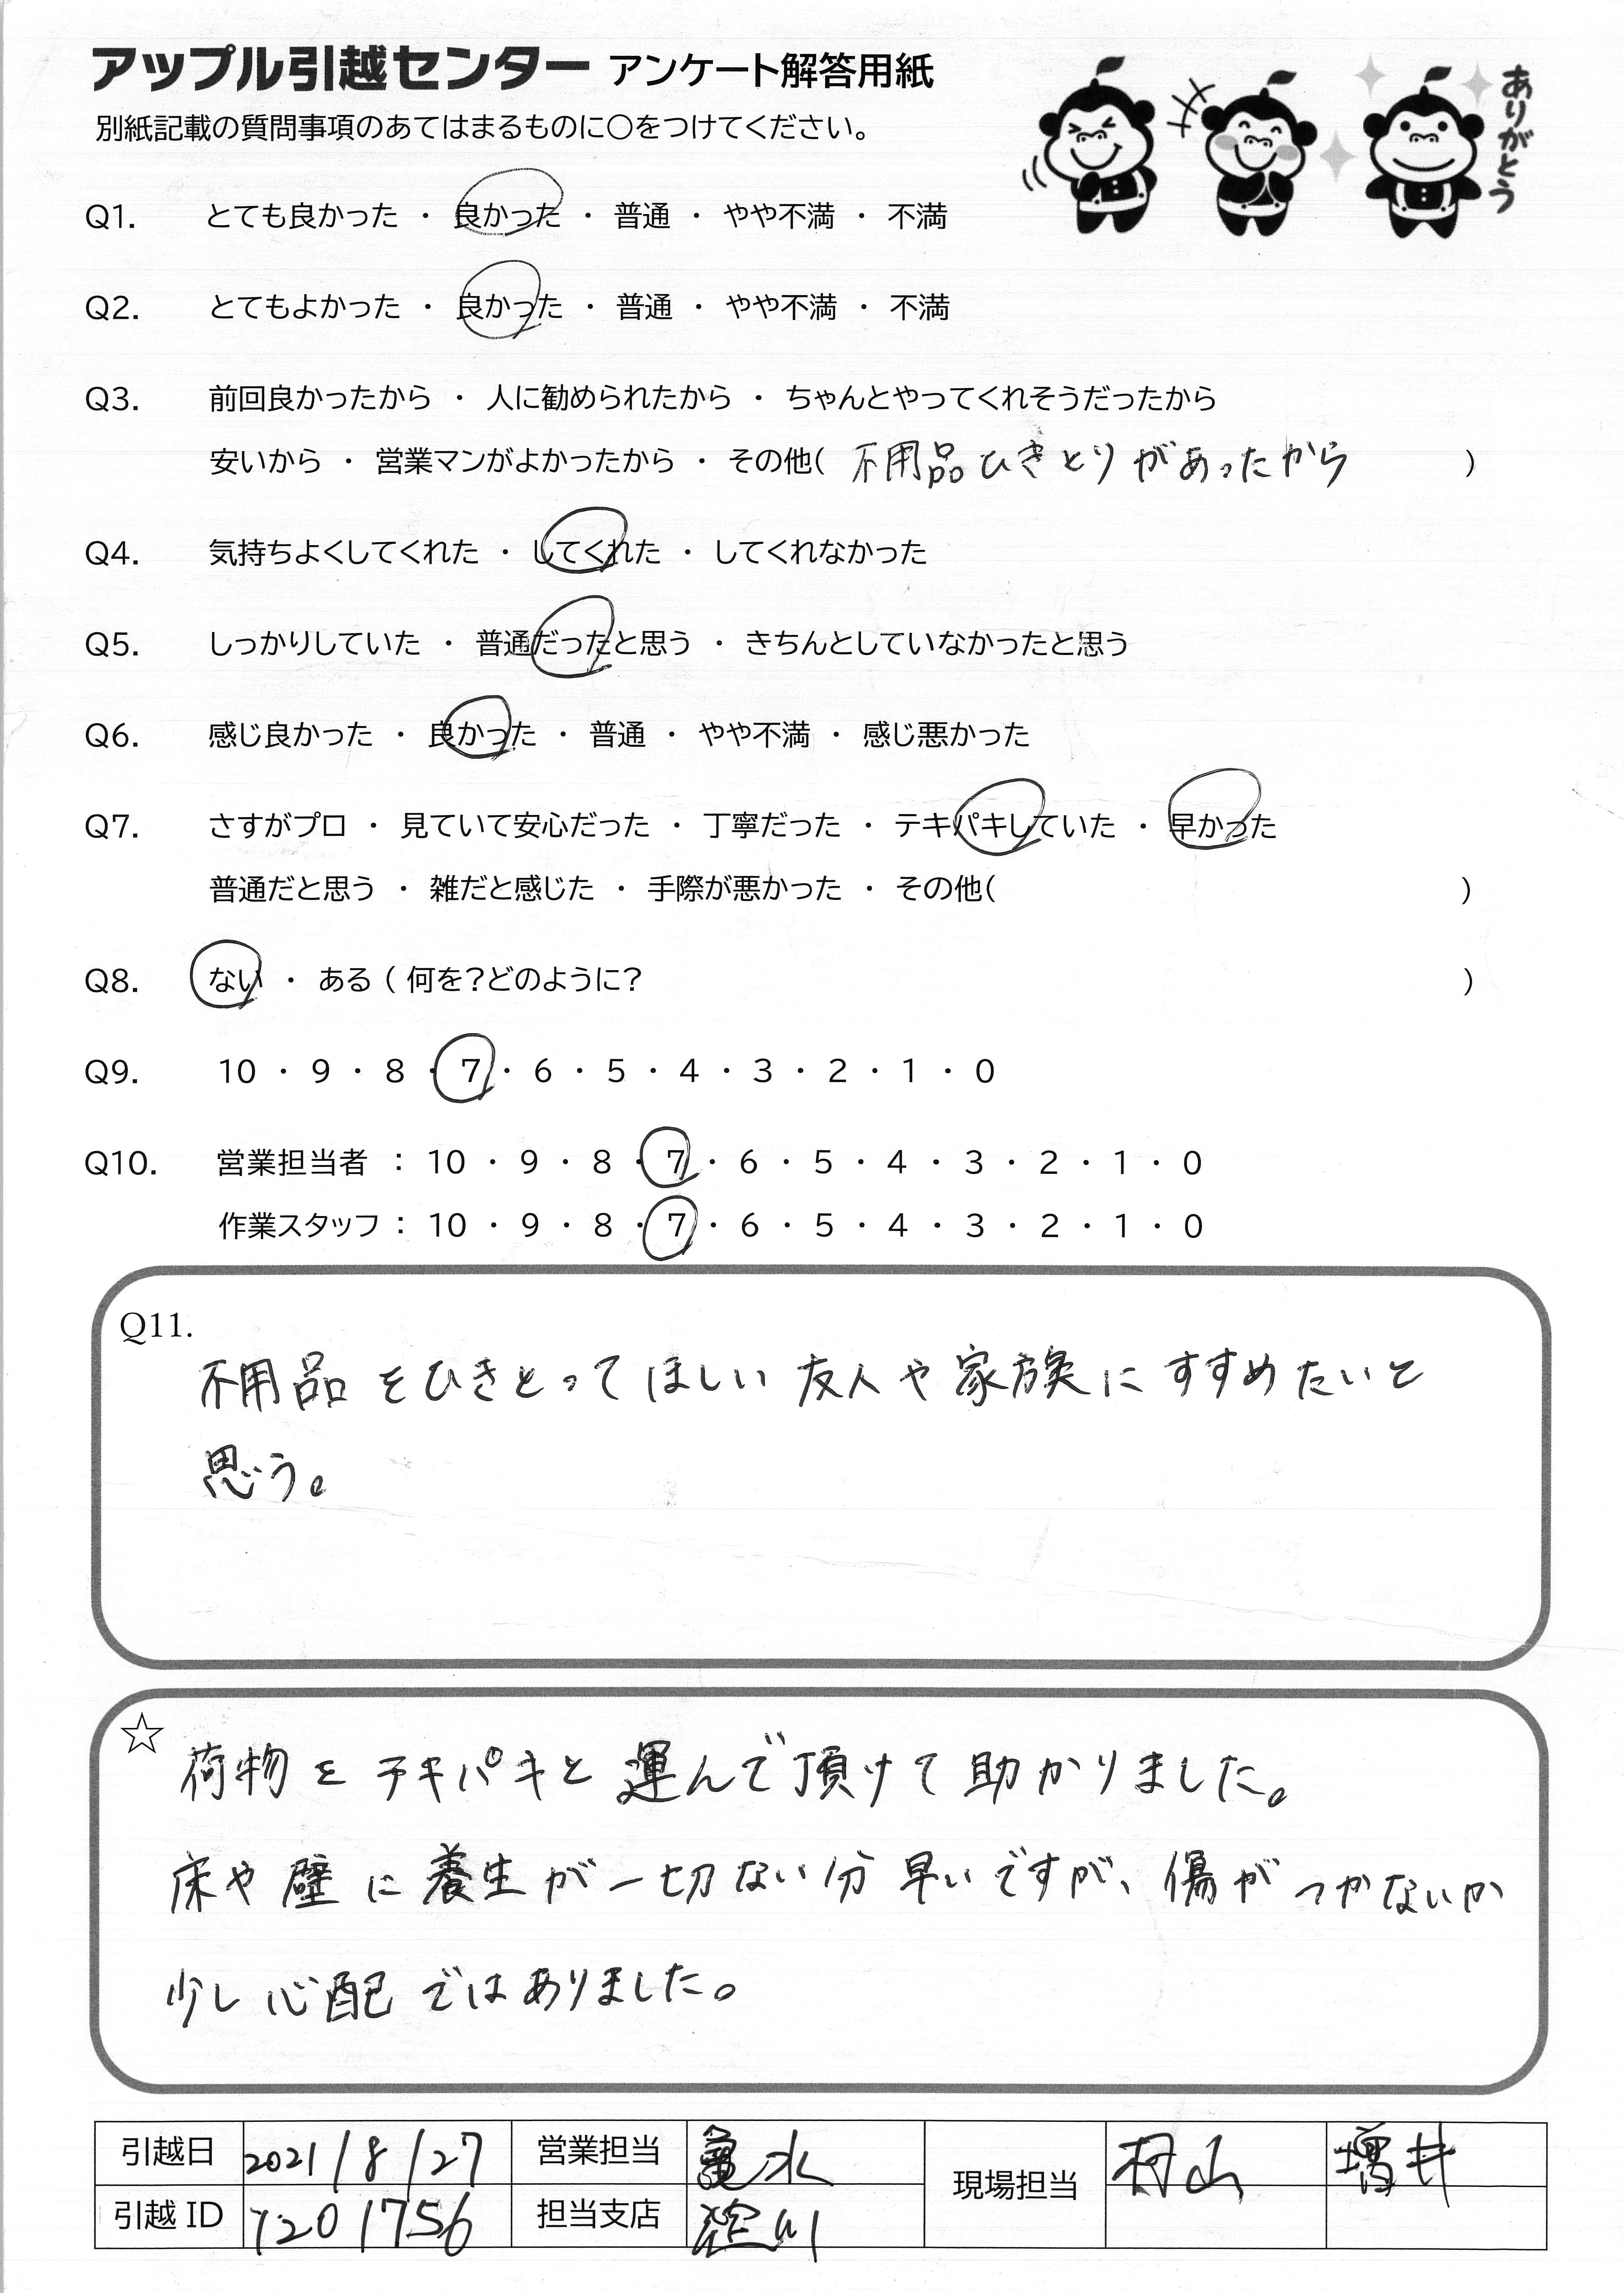 アップル引越センター アンケート解答用紙
別紙記載の質問事項のあてはまるものに〇をつけてください。
ありがとう
Q1. とても良かった ・ 良かった ・ 普通 ・ やや不満 ・ 不満
Q2. とてもよかった ・ 良かった ・ 普通 ・ やや不満 ・ 不満
Q3. 前回良かったから ・ 人に勧められたから ・ ちゃんとやってくれそうだったから
安いから ・ 営業マンがよかったから ・ その他( 不用品ひきとりがあったから )
Q4. 気持ちよくしてくれた ・ してくれた ・ してくれなかった
Q5. しっかりしていた ・ 普通だったと思う ・ きちんとしていなかったと思う
Q6. 感じ良かった ・ 良かった ・ 普通 ・ やや不満 ・ 感じ悪かった
Q7. さすがプロ ・ 見ていて安心だった ・ 丁寧だった ・ テキパキしていた ・ 早かった
普通だと思う ・ 雑だと感じた ・ 手際が悪かった ・ その他( )
Q8. ない ・ ある ( 何を?どのように? )
Q9. 10 ・ 9 ・ 8 ・ 7 ・ 6 ・ 5 ・ 4 ・ 3 ・ 2 ・ 1 ・ 0
Q10. 営業担当者 : 10 ・ 9 ・ 8 ・ 7 ・ 6 ・ 5 ・ 4 ・ 3 ・ 2 ・ 1 ・ 0
作業スタッフ : 10 ・ 9 ・ 8 ・ 7 ・ 6 ・ 5 ・ 4 ・ 3 ・ 2 ・ 1 ・ 0
Q11.
不用品をひきとってほしい友人や家族にすすめたいと
思う。
☆
荷物をテキパキと運んで頂けて助かりました。
床や壁に養生が一切ない分早いですが、傷がつかないか
少し心配ではありました。
引越日 2021/8/27 営業担当 亀水 現場担当 村山 増井
引越ID 7201756 担当支店 淀川